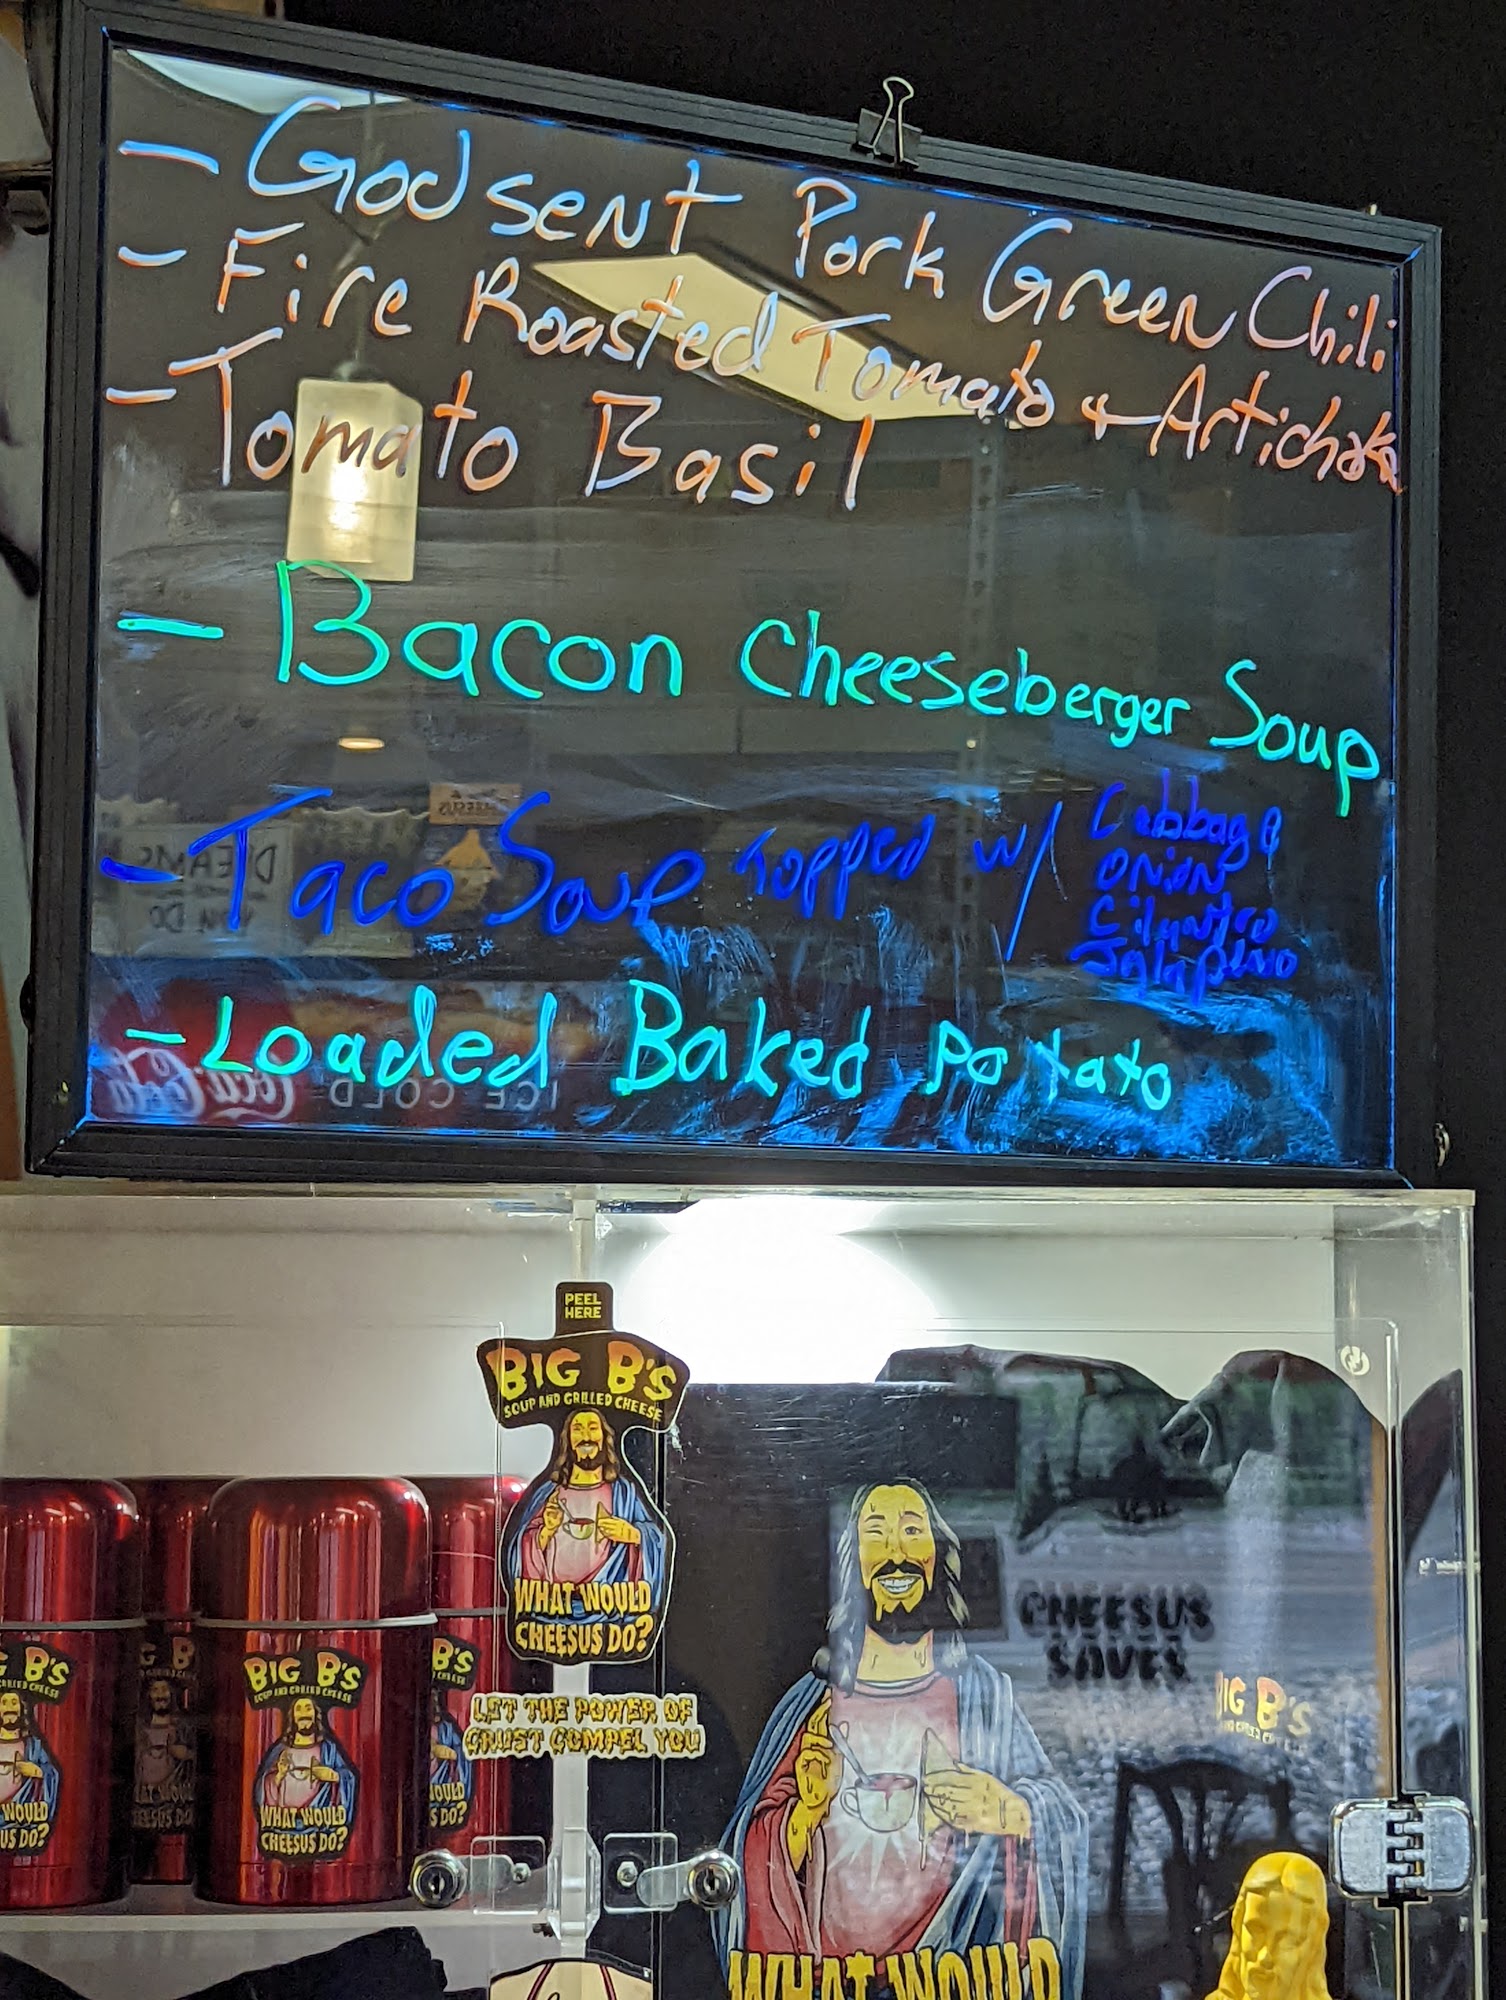 - Godsent Pork Green Chili
- Fire Roasted Tomato & Artichoke
- Tomato Basil
- Bacon Cheeseberger Soup
- Taco Soup Topped w/ Cabbage
Onion
Cilantro
Jalapeno
- Loaded Baked Potato
PEEL
HERE
BIG B'S
SOUP AND GRILLED CHEESE
WHAT WOULD
CHEESUS DO?
LET THE POWER OF
CRUST COMPEL YOU
CHEESUS
SAVES
BIG B'S
SOUP AND GRILLED CHEESE
WHAT WOULD
CHEESUS DO?
B'S
WOULD
US DO?
B'S
WOULD
S DO?
IG B'S
WHAT WOULD
ICE COLD
Coca-Cola
DREAMS